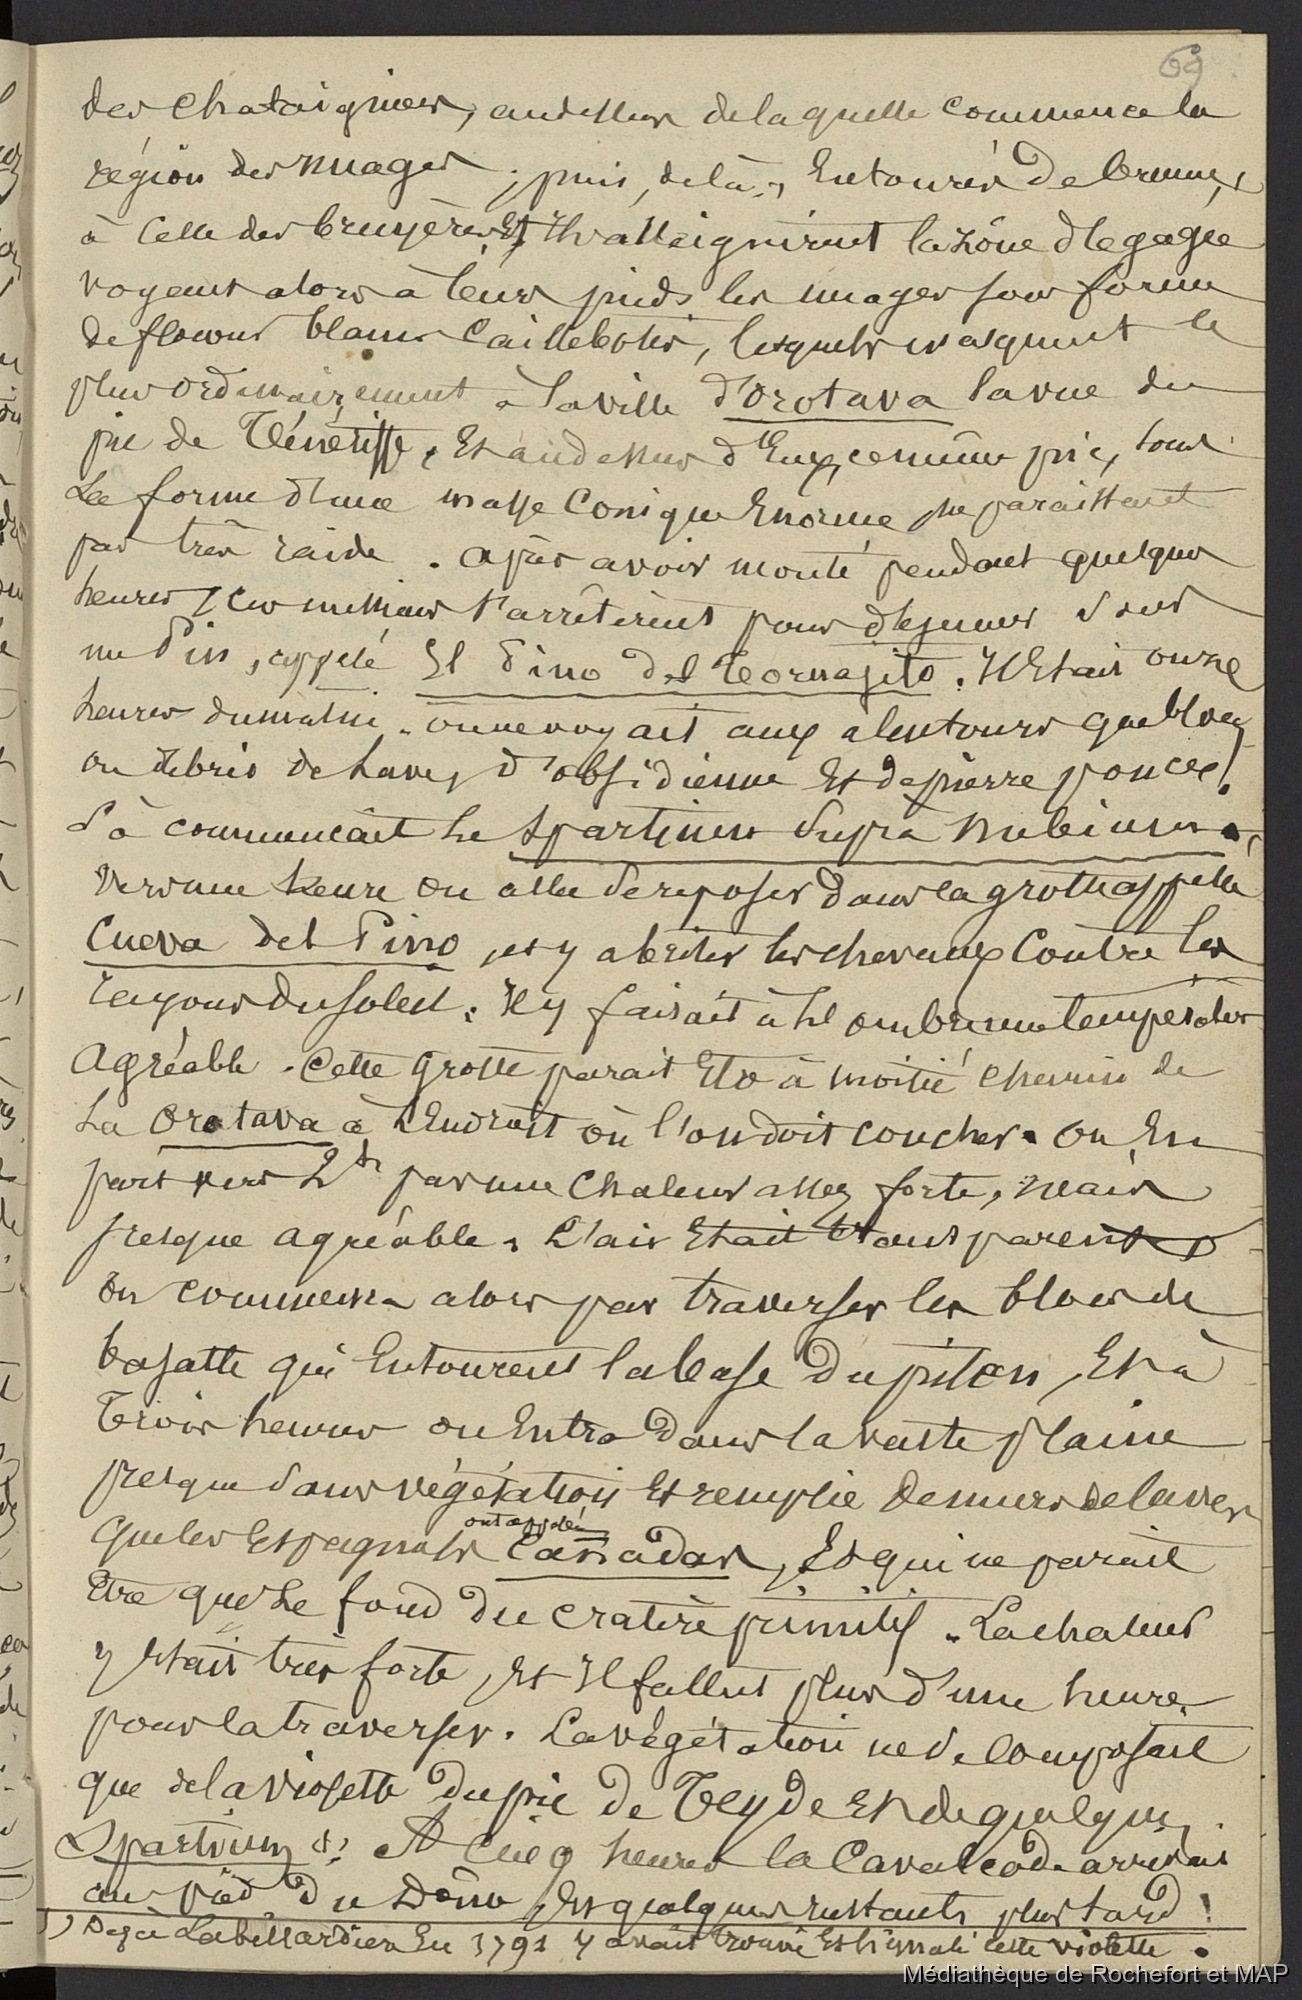 69
des chataigniers, audessus de laquelle commence la
région des nuages, puis, de là, Entourés de brume,
à celle des bruyères, Et Ils atteignirent la zône dégagée
voyant alors à leurs pieds les nuages sous forme
de flocons blancs caillebotés, lesquels masquent le
plus ordinairement à la ville d'Orotava la vue du
pic de Ténériffe, Et audessus d'Eux, ce même pic, sous
La forme d'une masse conique Enorme, ne paraissant
pas très raide. après avoir monté pendant quelques
heures, ces messieurs s'arrêtèrent pour déjeuner sous
un Pin, appelé El Pino del Tornajito. Il Etait onze
heures du matin. on ne voyait aux alentours que blocs
ou débris de Laves, d'obsidienne Et de pierre ponces.
Là commencait Le Spartium Supra Nubium.
Vers une heure on alla se reposer dans la grotte appelée
Cueva del Pino, et y abriter les chevaux contre les
rayons du soleil. Il y faisait à L'ombre une température
agréable. Cette grotte parait Etre à moitié chemin de
La Orotava à L'Endroit où l'on doit coucher. On En
part vers 2h par une chaleur assez forte, mais
presque agréable. L'air Etait transparent
On commença alors par traverser les blocs de
basalte qui Entourent la base du piton, Et à
Trois heures on Entra dans la vaste plaine
presque sans végétation Et remplie de murs de laves
que les Espagnols ont appelée Cañadas, Et qui ne parait
Etre que Le fond du cratère primitif. La chaleur
y Etait très forte, Et Il fallut plus d'une heure
pour la traverser. La végétation ne se composait
que de la violette du pic de Teyde Et de quelques
Spartium (1). A cinq heures la Cavalcade arrivait
au pied du Dôme, Et quelques instants plus tard!
1) Deja Labillardière En 1791 y avait trouvé Et signalé cette violette.
Médiathèque de Rochefort et MAP